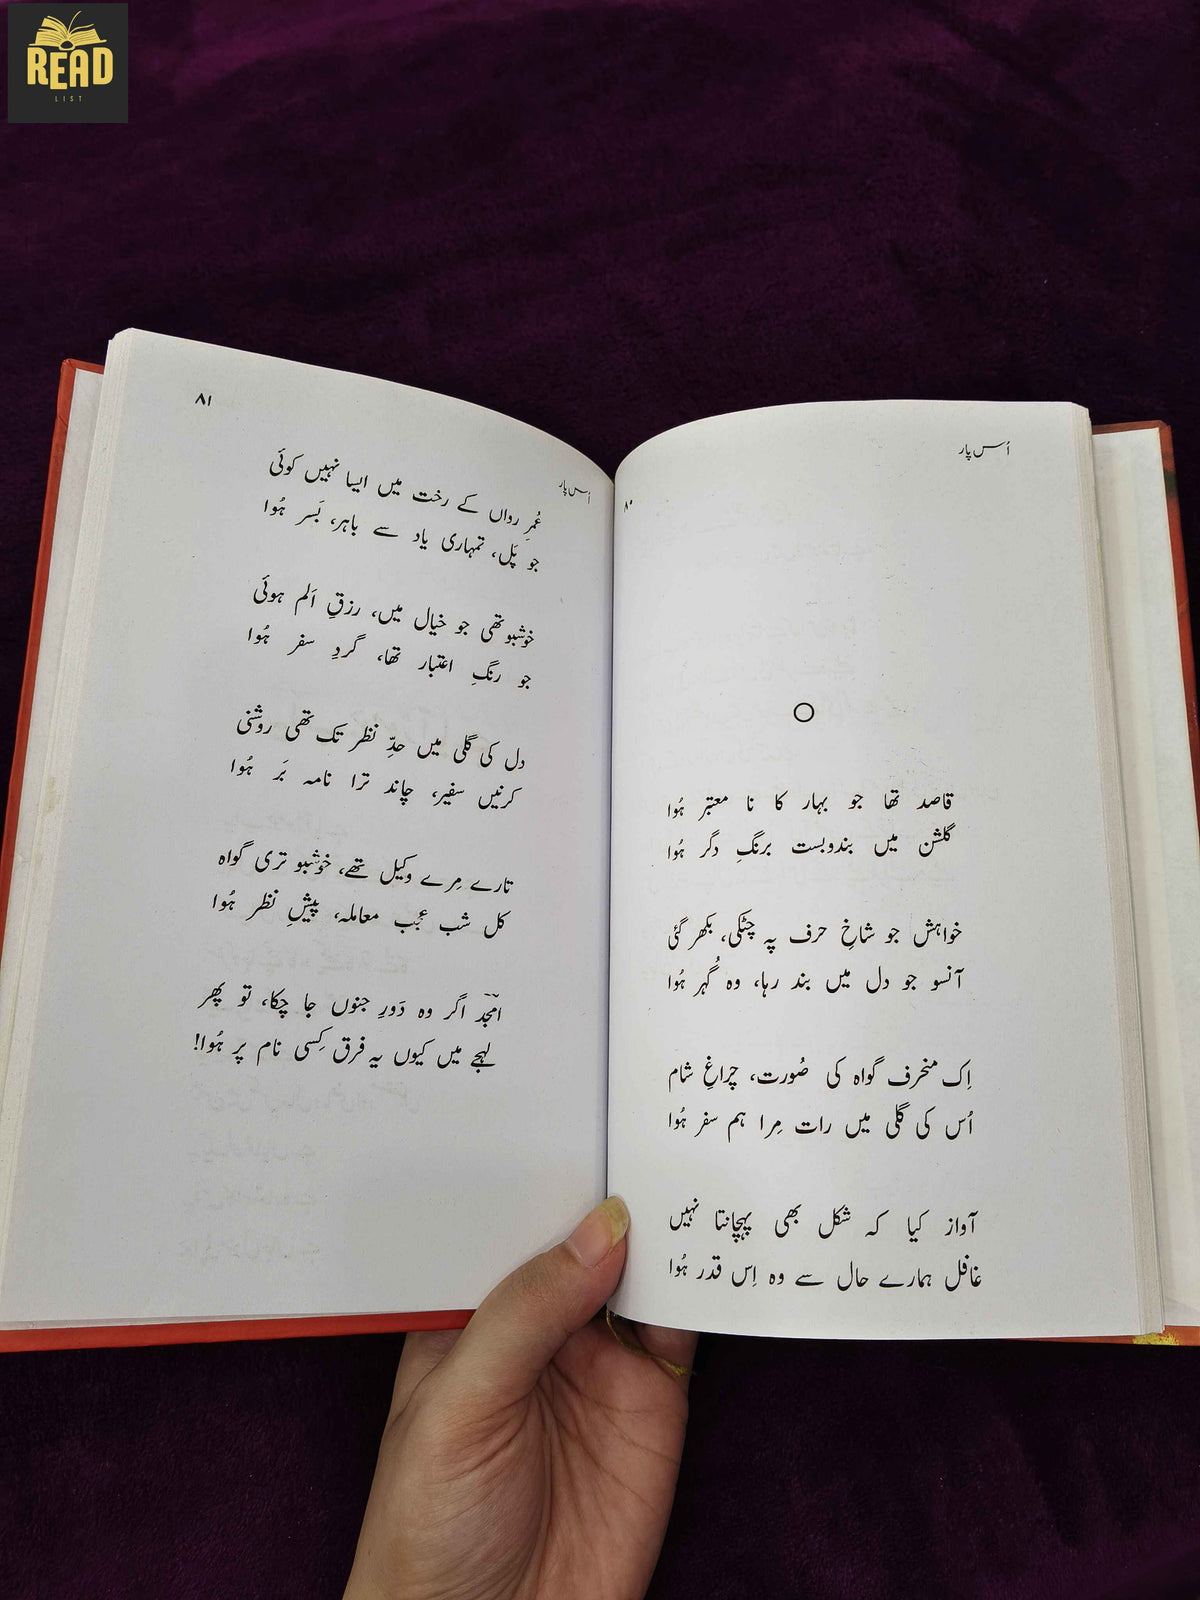 READ
LIST
اُس پار
۸۰
قاصد تھا جو بہار کا نا معتبر ہُوا
گلشن میں بندوبست برنگِ دگر ہُوا
خواہش جو شاخِ حرف پہ چٹکی، بکھر گئی
آنسو جو دل میں بند رہا، وہ گُہر ہُوا
اِک منحرف گواہ کی صُورت، چراغِ شام
اُس کی گلی میں رات مِرا ہم سفر ہُوا
آواز کیا کہ شکل بھی پہچانتا نہیں
غافل ہمارے حال سے وہ اِس قدر ہُوا
اُس پار
۸۱
عُمرِ رواں کے رخت میں ایسا نہیں کوئی
جو پَل، تمہاری یاد سے باہر، بَسر ہُوا
خوشبو تھی جو خیال میں، رزقِ اَلم ہوئی
جو رنگِ اعتبار تھا، گردِ سفر ہُوا
دل کی گلی میں حدِّ نظر تک تھی روشنی
کرنیں سفیر، چاند ترا نامہ بَر ہُوا
تارے مِرے وکیل تھے، خوشبو تری گواہ
کل شب عجب معاملہ، پیشِ نظر ہُوا
امجد اگر وہ دَورِ جنوں جا چکا، تو پھر
لہجے میں کیوں یہ فرق کِسی نام پر ہُوا!